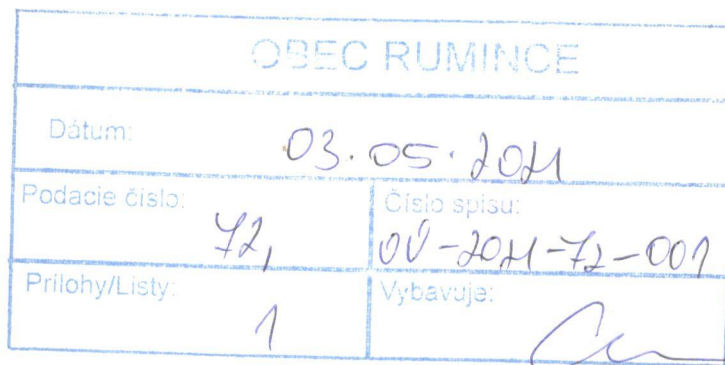 OBEC RUMINCE
Dátum: 03.05.2021
Podacie číslo: 72,
Číslo spisu: OÚ-2021-72-001
Prílohy/Listy: 1
Vybavuje: